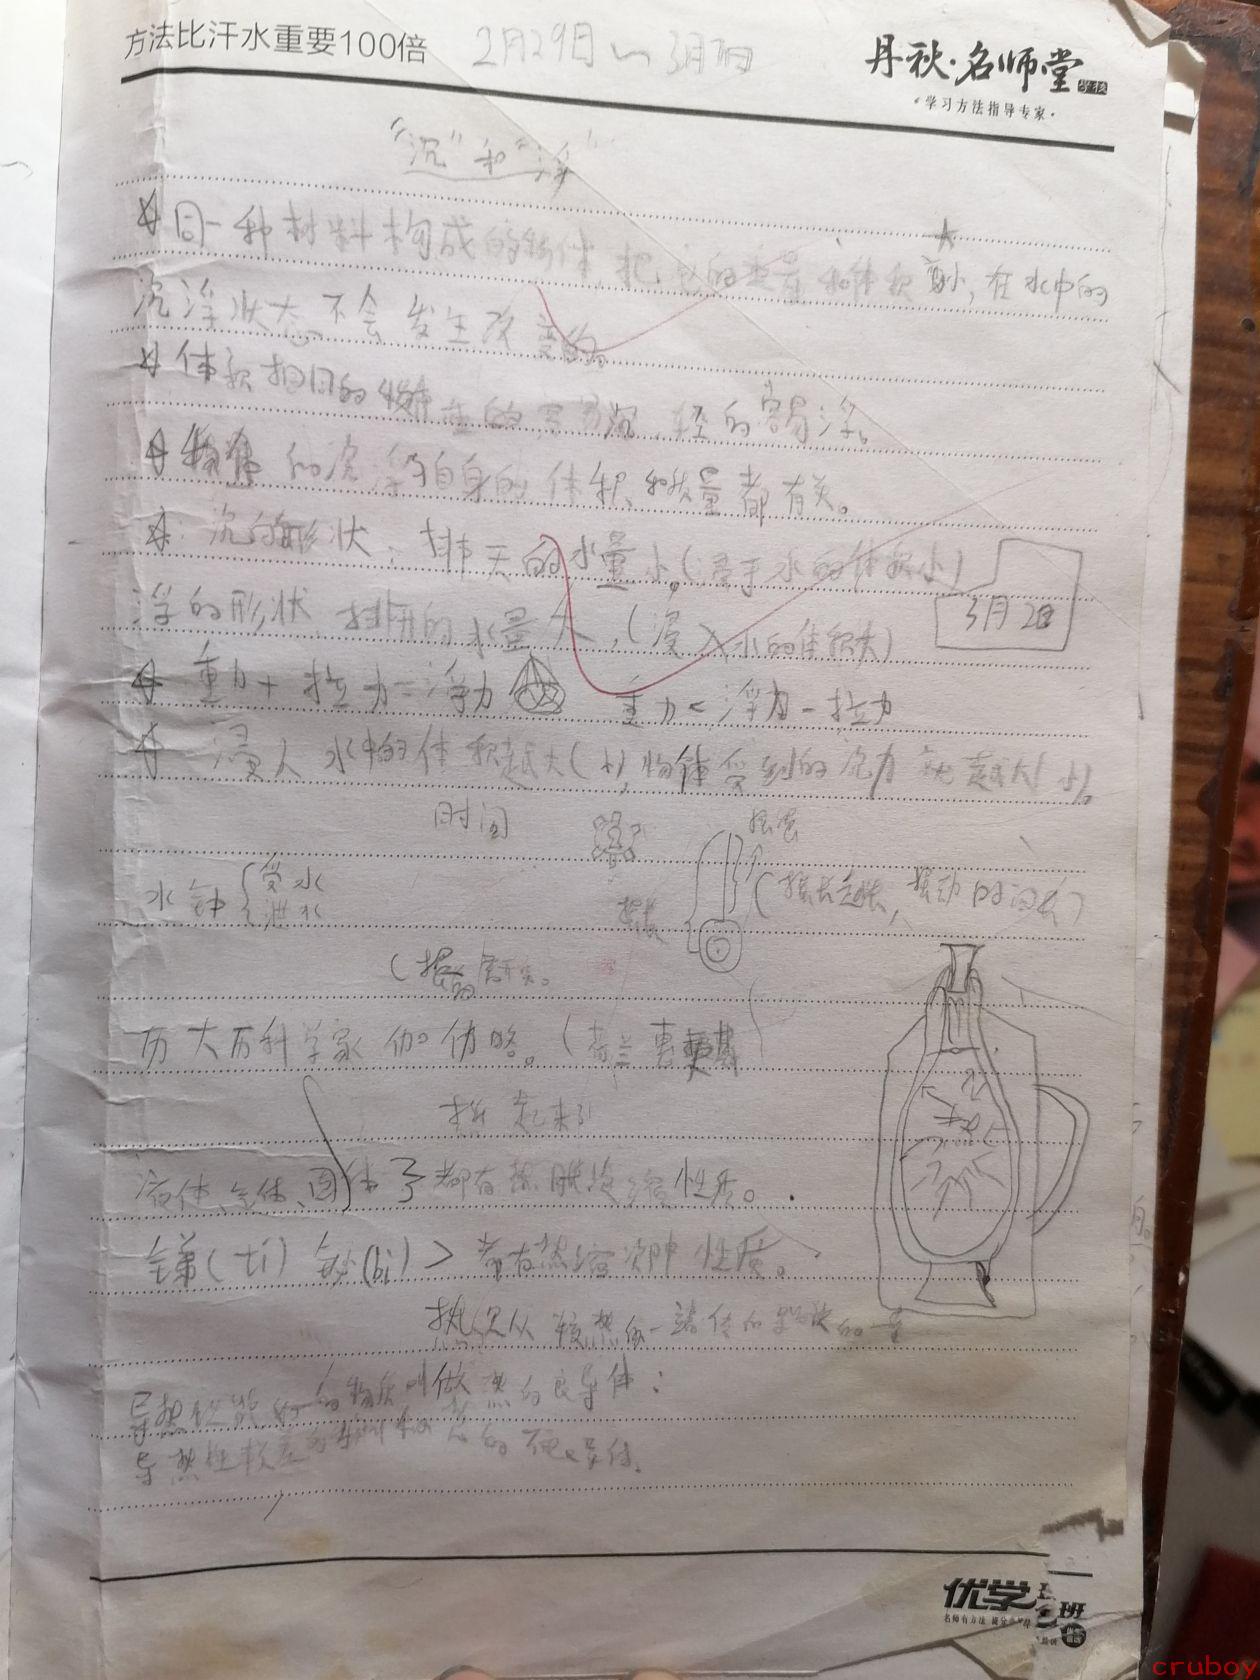 方法比汗水重要100倍 2月29日~3月
丹秋·名师堂 学校
·学习方法指导专家·
"沉"和"浮"
同一种材料构成的物体,把它的重量和体积,在水中的
沉浮状态不会发生改变的。
体积相同的物体,重的容易沉,轻的容易浮。
物体的沉浮与自身的体积和质量都有关。
沉的形状:排开的水量小,(浸于水的体积小)
浮的形状,排开的水量大,(浸入水的体积大)
3月2日
重力+拉力=浮力 重力=浮力-拉力
浸入水中的体积越大(小)物体受到的浮力就越大(小)。
时间
水钟 受水 泄水
摆长
(摆长越长,摆动时间长)
历大历科学家伽伐略。(荷兰惠更斯
液体、气体、固体 都有热胀冷缩性质。
锑(ti) 铋(bi) > 都有热缩冷胀性质。
热从较热的一端传向
导热性能好的物质叫做热的良导体;
导热性较差的 热的不良导体。
优学 班
名师有方法
crubox